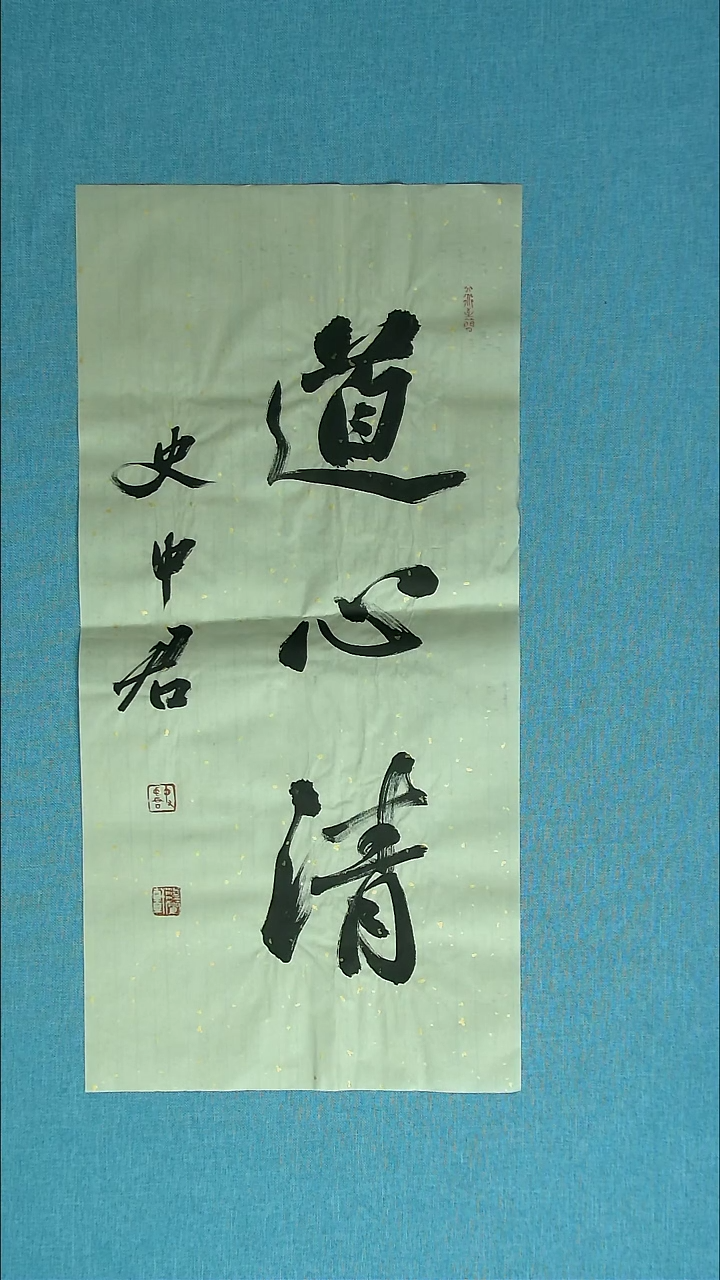 道心清
史申君